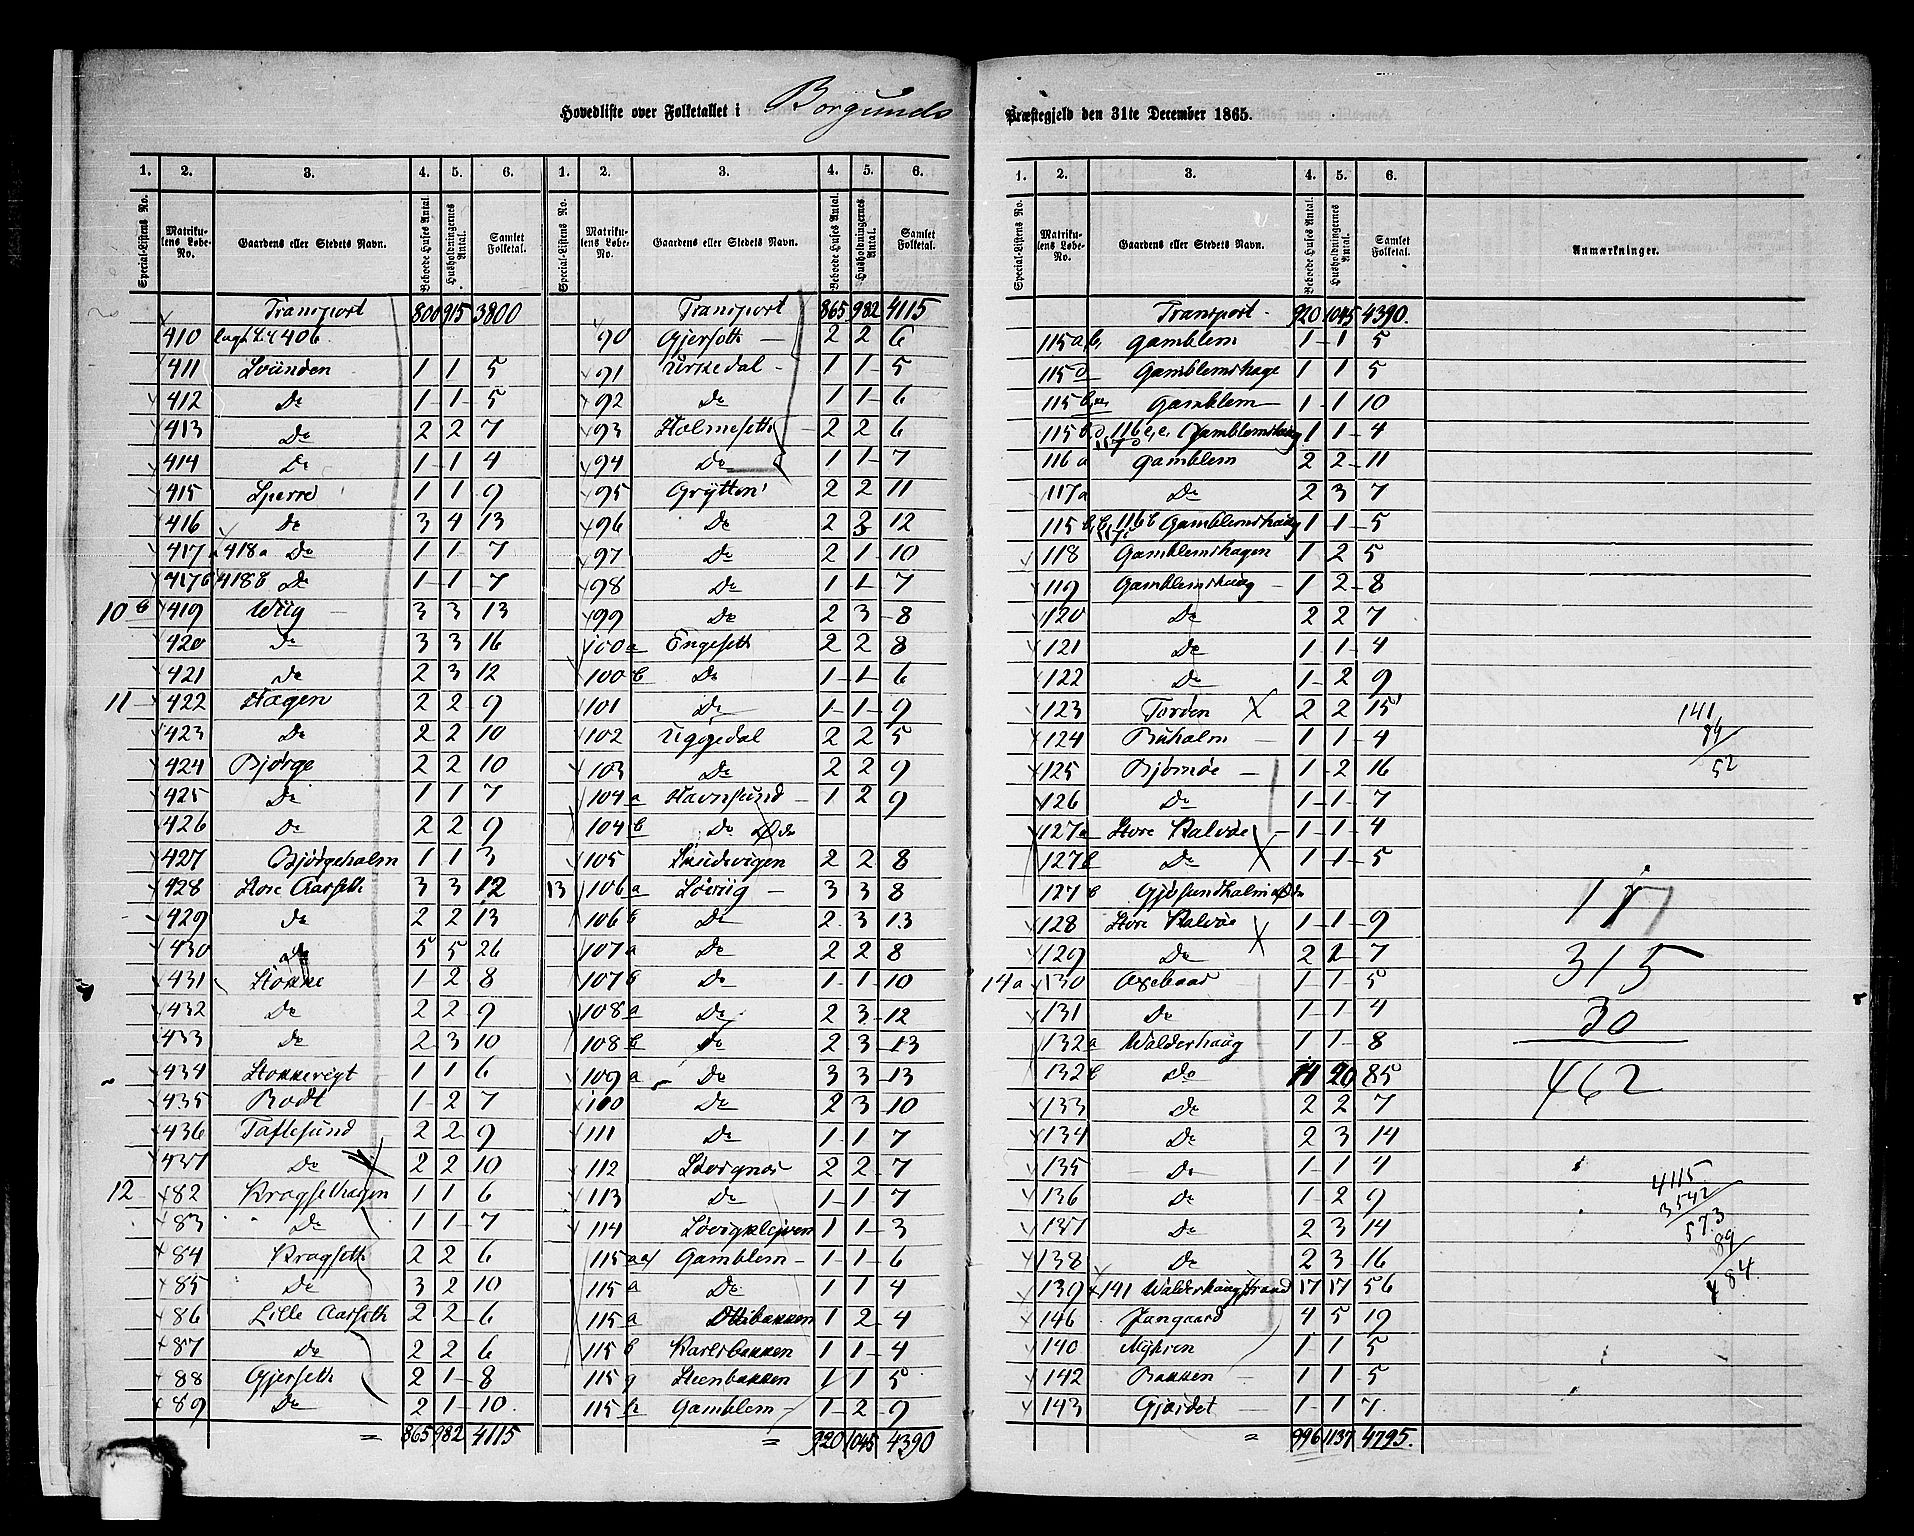 Hovedliste over Folketallet i Borgunds Præstegjeld den 31te December 1865.
1. 2. 3. 4. 5. 6. 1. 2. 3. 4. 5. 6.
Special-Listens No. Matrikulens Løbe-No. Gaardens eller Stedets Navn. Beboede Huses Antal. Husholdningernes Antal. Samlet Folketal. Special-Listens No. Matrikulens Løbe-No. Gaardens eller Stedets Navn. Beboede Huses Antal. Husholdningernes Antal. Samlet Folketal.
Transport 800 915 3800
410 406
411 Svünden 1 1 5
412 Do 1 1 5
413 Do 2 2 7
414 Do 1 1 4
415 Sperre 1 1 9
416 Do 3 4 13
417a 418a Do 1 1 7
417b 418b Do 1 1 7
10b 419 Wiig 3 3 13
420 Do 3 3 16
421 Do 2 3 12
11 422 Hagen 2 2 9
423 Do 2 2 10
424 Bjørge 2 2 10
425 Do 1 1 7
426 Do 2 2 9
427 Bjørgeholm 1 1 3
428 Store Aarseth 3 3 12
429 Do 2 2 13
430 Do 5 5 26
431 Stokke 1 2 8
432 Do 2 2 9
433 Do 2 3 10
434 Stokkevigt 1 1 6
435 Bodt 1 2 7
436 Taftesund 2 2 9
437 Do 2 2 10
12 82 Kragsethagen 1 1 6
83 Do 1 1 7
84 Kragseth 2 2 6
85 Do 3 2 10
86 Lille Aarseth 2 2 6
87 Do 2 2 6
88 Gjerseth 2 1 8
89 Do 2 1 10
= 865 982 4115
Transport 865 982 4115
90 Gjerseth 2 2 6
91 Urkedal 1 1 5
92 Do 1 1 6
93 Holmeseth 2 2 6
94 Do 1 1 7
95 Grytten 2 2 11
96 Do 2 3 12
97 Do 2 1 10
98 Do 1 1 7
99 Do 2 3 8
100a Engeseth 2 2 8
100b Do 1 1 6
101 Do 1 1 9
102 Uggedal 2 2 5
103 Do 2 2 9
104a Havnsund 1 2 9
104b Do Øde
105 Skudvigen 2 2 8
13 106a Løviig 3 3 8
106b Do 2 3 13
107a Do 2 2 8
107b Do 1 1 10
108a Do 2 3 12
108b Do 2 3 13
109a Do 3 3 13
110 Do 2 3 10
111 Do 1 1 7
112 Storgnos 2 2 7
113 Do 1 1 7
114 Løvigklejven 1 1 3
115aa Gamblem 1 1 6
115a Do 1 1 4
115a Ottibakken 1 2 4
115b Karlsbakken 1 1 4
115g Steenbakken 1 1 5
115h Gamblem 1 2 9
= 920 1045 4390
1. 2. 3. 4. 5. 6.
Special-Listens No. Matrikulens Løbe-No. Gaardens eller Stedets Navn. Beboede Huses Antal. Husholdningernes Antal. Samlet Folketal. Anmærkninger.
Transport 920 1045 4390.
115a,b, Gamblem 1 1 5
115d Gamblemshage 1 1 5
115 Gamblem 1 1 10
115 116 Gamblemshaug 1 1 4
116a Gamblem 2 2 11
117a Do 2 3 7
115 116b Gamblemshaug 1 1 5
118 Gamblemshagen 1 2 5
119 Gamblemshaug 1 2 8
120 Do 2 2 7
121 Do 1 1 4
122 Do 1 2 9
123 Torden X 2 2 15
124 Buholm 1 1 4
125 Bjørnøe 1 2 16
126 Do 1 1 7
127a Store Kalvøe 1 1 4
127b Do 1 1 5
127c Gjøsundholm Øde
128 Store Kalvøe 1 1 9
129 Do 2 2 7
14a 130 Oxebaas 1 1 5
131 Do 1 1 4
132a Walderhaug 1 1 8
132b Do 11 20 85
133 Do 2 2 7
134 Do 2 3 14
135 Do 1 1 4
136 Do 1 2 9
137 Do 2 3 14
138 Do 2 3 16
139 141 Walderhaugstrand 17 17 56
146 Jungaard 4 5 19
140 Nyhren 1 1 5
142 Bakken 1 1 5
143 Gjærdet 1 1 7
= 996 1137 4795.
141
89
52
117
315
30
462
4115
3542
573
89
484